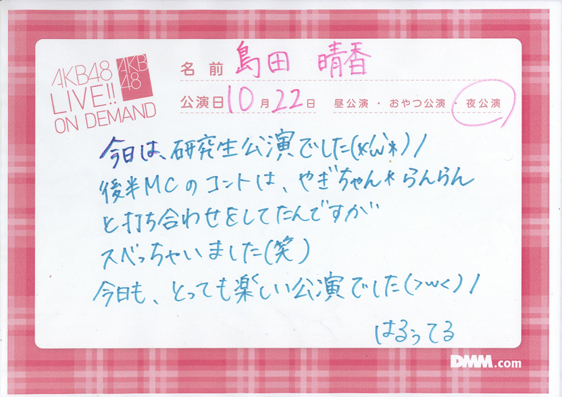 AKB48
LIVE!!
ON DEMAND
AKB
48
名前 島田 晴香
公演日 10月22日 昼公演・おやつ公演・夜公演
今日は、研究生公演でした(*´ω`*)/
後半MCのコントは、やぎちゃん*らんらん
と打ち合わせをしてたんですが
スベっちゃいました(笑)
今日も、とっても楽しい公演でした(>w<)/
はるぅてる
DMM.com